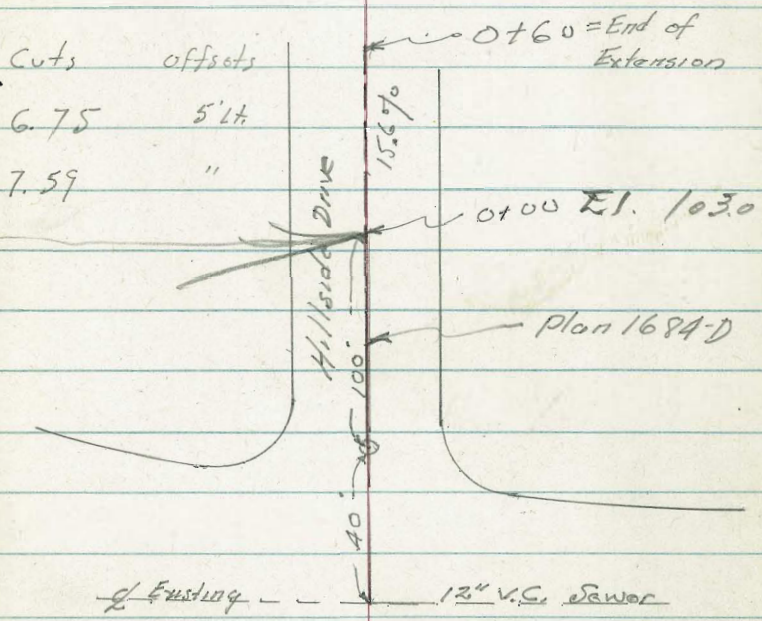 Cuts offsets
6.75 5' Lt.
7.59 "
0+60 = End of
Extension
15.6%
Hillside Drive
0+00 El. 103.0
Plan 1684-D
100'
40'
℄ Existing 12" V.C. Sewer